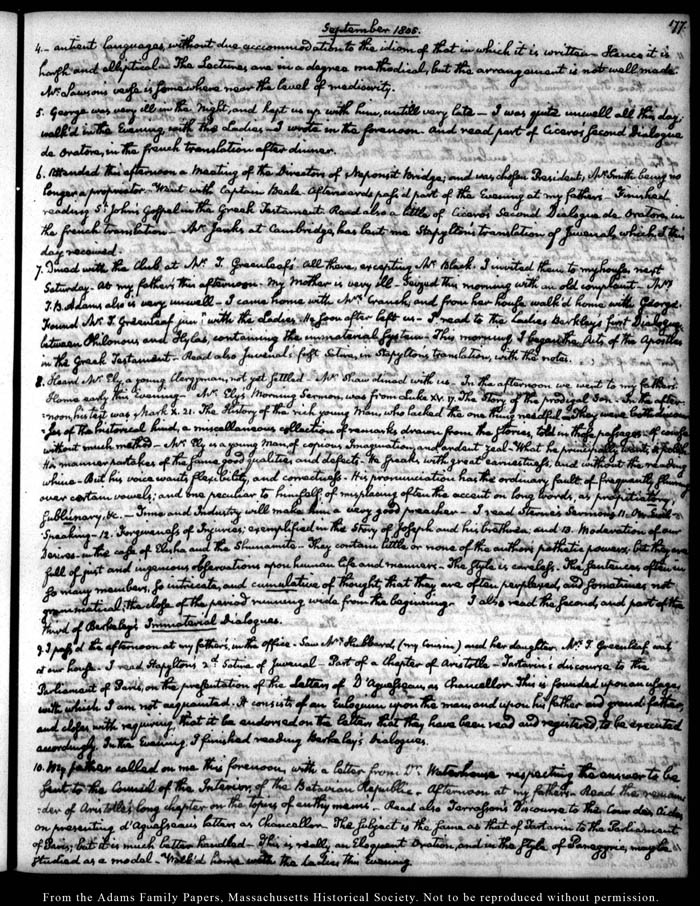 September 1805.
177
4.- antient languages, without due accommodation to the idiom of that in which it is written- Hence it is
harsh and elliptical- The Lectures are in a degree methodical, but the arrangement is not well made
Mr. Lawsons verse is somewhere near the level of mediocrity.
5. George was very ill in the Night, and kept us up with him, untill very late- I was quite unwell all this day.
walk'd in the Evening with the Ladies- I wrote in the forenoon. and read part of Cicero's second Dialogue
de Oratore, in the french translation after dinner.
6. Attended this afternoon a Meeting of the Directors of Neponset Bridge; and was chosen President, Mr. Smith being no
longer a proprietor- Went with Captain Beale. Afterwards pass'd part of the Evening at my fathers- Finished
reading St. John's Gospel in the Greek Testament. Read also a little of Cicero's Second Dialogue de Oratore, in
the french translation- Mr. Jenks at Cambridge, has lent me Stapylton's translation of Juvenal, which I this
day received.
7. Dined with the Club at Mr. T. Greenleaf's. All there, excepting Mr. Black. I invited them to my house, next
Saturday. At my fathers this afternoon. My Mother is very ill- Seized this morning with an old complaint- Mrs.
T. B. Adams also is very unwell- I came home with Mrs. Cranch, and from her house walk'd home with George.
Found Mr. T. Greenleaf junr. with the Ladies. He soon after left us- I read to the Ladies Berkley's first Dialogue,
between Philonous and Hylas, containing the immaterial System- This morning I began the Acts of the Apostles
in the Greek Testament- Read also Juvenal's first Satire, in Stapylton's translation, with the notes.
8. Heard Mr. Ely, a young Clergyman, not yet settled- Mr. Shaw dined with us- In the afternoon we went to my fathers.
Home early this Evening- Mr. Ely's Morning Sermon, was from Luke XV. 17. The Story of the prodigal Son- In the after-
noon, his text was Mark X. 21. The History of the rich young Man, who lacked the one thing needful- They were both discour-
ses of the historical kind, a miscellaneous collection of remarks drawn from the stories, told in those passages- of course
without much method- Mr. Ely is a young Man of copious Imagination, and ardent zeal- What he principally wants is
His manner partakes of the same good qualities, and defects- He speaks with great earnestness, and without the reading
whine- But his voice wants flexibility, and correctness- His pronunciation has the ordinary fault of frequently slurring
over certain vowels; and one peculiar to himself, of misplacing often the accent on long words, as propitiatory,
sublúnary, &c.- Time and Industry will make him a very good preacher- I read Sterne's Sermons 11. On Evil-
Speaking- 12. Forgiveness of Injuries; exemplified in the Story of Joseph and his brethren: and 13. Moderation of our
Desires- in the case of Elisha and the Shunamite- They contain little or none of the authors pathetic powers; but they are
full of just and ingenious observations upon human life and manners- The style is careless. The sentences often in
so many members, so intricate, and cumulative of thought, that they are often perplexed, and sometimes not
grammatical; the close of the period running wide from the beginning. I also read the second, and part of the
third of Berkeley's Immaterial Dialogues.
9. I pass'd the afternoon at my father's, in the office- Saw Mrs. Hubbard, (my Cousin) and her daughter. Mr. T. Greenleaf was
at our house- I read Stapylton's 2d. Satire of Juvenal- Part of a Chapter of Aristotle- Tartarin's discourse to the
Parliament of Paris, on the presentation of the letters of D'Aguesseau as Chancellor. This is founded upon an usage,
with which I am not acquainted. It consists of an Eulogium upon the man, and upon his father and grand-father,
and closes with requiring that it be endorsed on the letters that they have been read and registered, to be executed
accordingly. In the Evening, I finished reading Berkeley's Dialogues.
10. My father called on me this forenoon, with a letter from Dr. Waterhouse respecting the answer to be
sent to the Council of the Interior, of the Batavian Republic- Afternoon at my fathers. Read the remain-
:der of Aristotle's long chapter on the topics of enthymems- Read also Terrasson's Discourse to the Cour des Aides,
on presenting d'Aguesseau's letters as Chancellor. The subject is the same as that of Tartarin to the Parliament
of Paris; but it is much better handled- This is really an Eloquent Oration, and in the style of Panegyric, may be
studied as a model- Walk'd home with the Ladies this Evening.
From the Adams Family Papers, Massachusetts Historical Society. Not to be reproduced without permission.